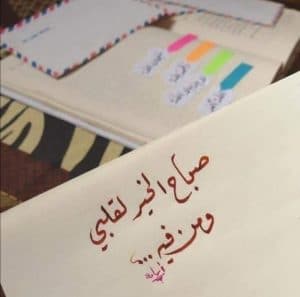 صباح الخير لقلبي
ومن فيه ...